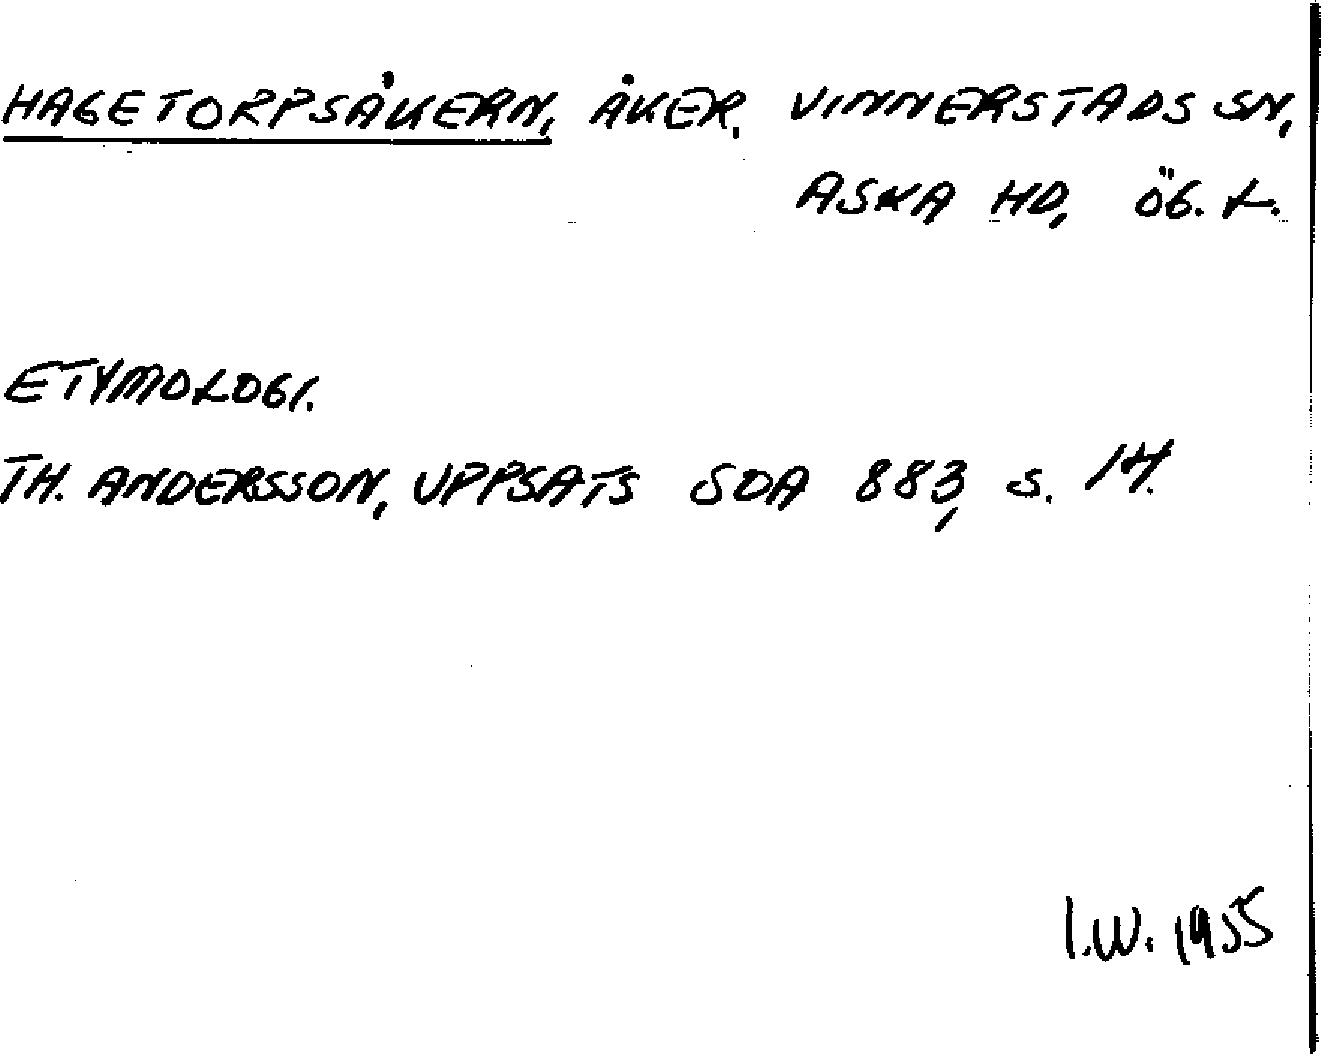 HAGETORPSÅKERN, ÅKER. VINNERSTADS SN,
ASKA HD, ÖG. L.
ETYMOLOGI.
TH. ANDERSSON, UPPSATS SOA 883, S. 14.
I.W. 1955